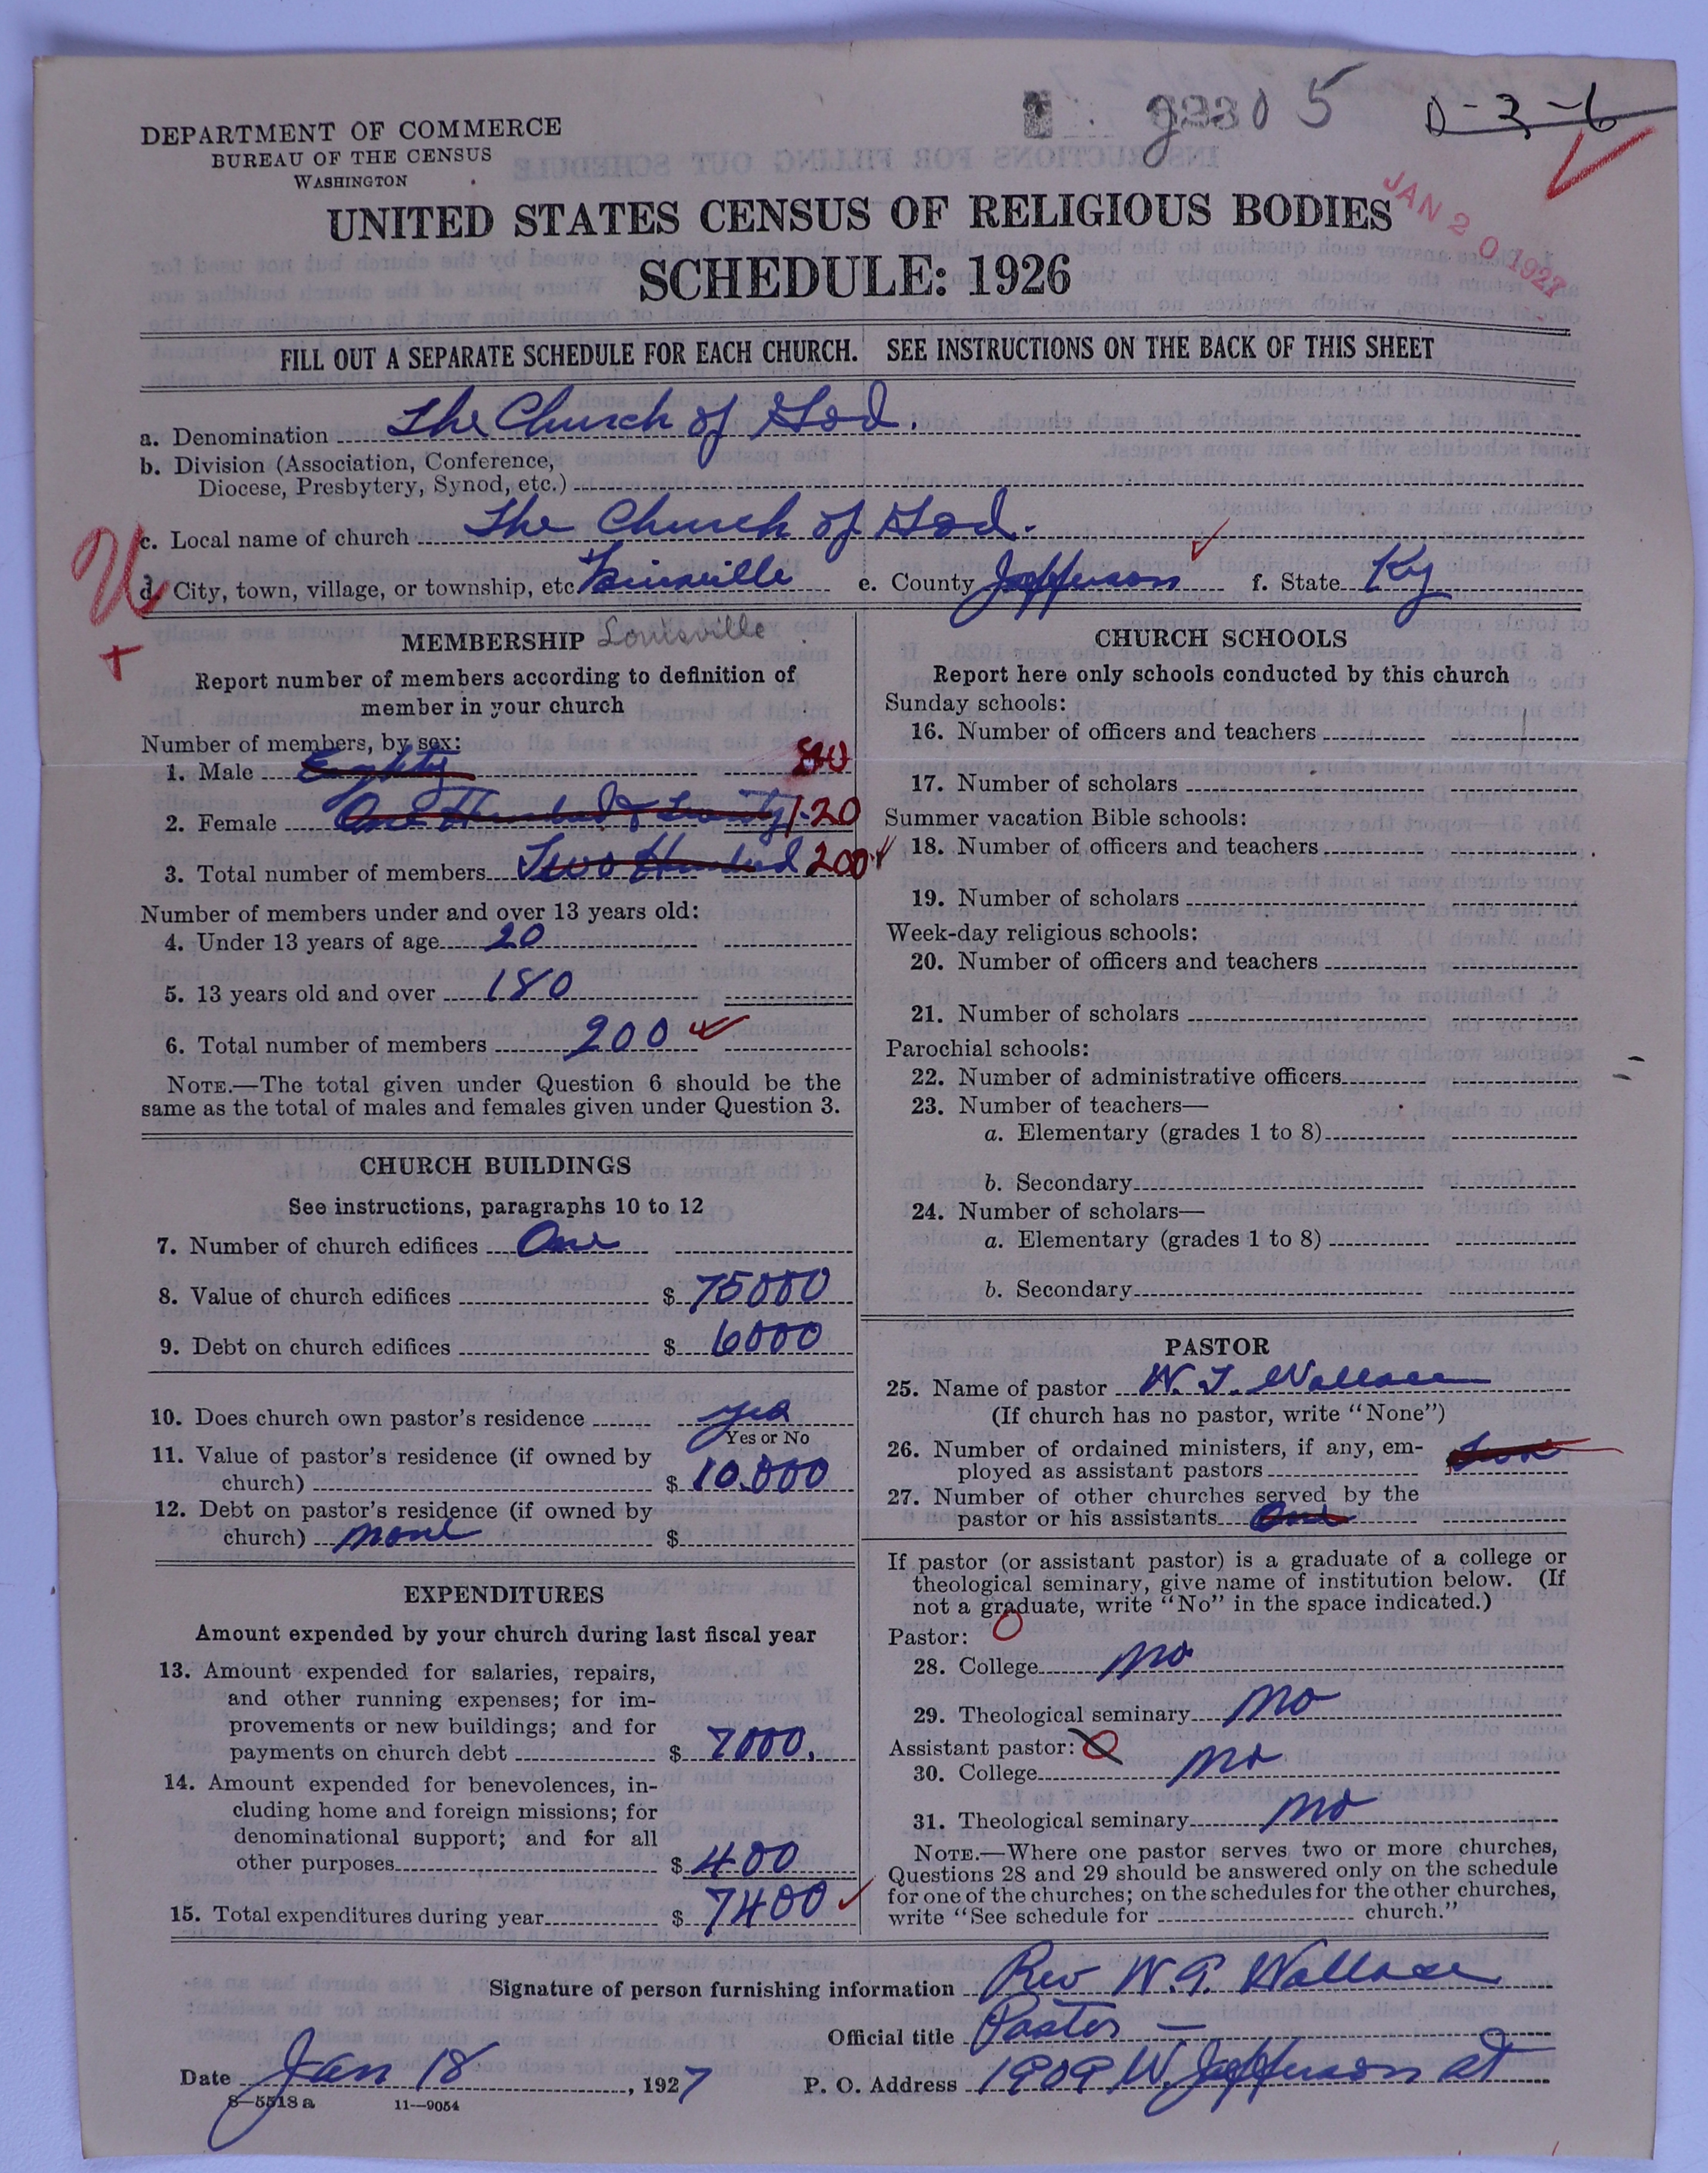 5
D-3-6
DEPARTMENT OF COMMERCE
BUREAU OF THE CENSUS
WASHINGTON
JAN 20 1927
UNITED STATES CENSUS OF RELIGIOUS BODIES
SCHEDULE: 1926
FILL OUT A SEPARATE SCHEDULE FOR EACH CHURCH. SEE INSTRUCTIONS ON THE BACK OF THIS SHEET
a. Denomination The Church of God.
b. Division (Association, Conference,
Diocese, Presbytery, Synod, etc.)
c. Local name of church The Church of God.
d. City, town, village, or township, etc e. County Jefferson f. State Ky
MEMBERSHIP Louisville
Report number of members according to definition of
member in your church
Number of members, by sex:
1. Male Eighty 80
2. Female One Hundred & Twenty 120
3. Total number of members Two Hundred 200
Number of members under and over 13 years old:
4. Under 13 years of age 20
5. 13 years old and over 180
6. Total number of members 200
NOTE.—The total given under Question 6 should be the
same as the total of males and females given under Question 3.
CHURCH BUILDINGS
See instructions, paragraphs 10 to 12
7. Number of church edifices One
8. Value of church edifices $ 75000
9. Debt on church edifices $ 6000
10. Does church own pastor's residence yes
Yes or No
11. Value of pastor's residence (if owned by
church) $ 10.000
12. Debt on pastor's residence (if owned by
church) none $
EXPENDITURES
Amount expended by your church during last fiscal year
13. Amount expended for salaries, repairs,
and other running expenses; for im-
provements or new buildings; and for
payments on church debt $ 7000.
14. Amount expended for benevolences, in-
cluding home and foreign missions; for
denominational support; and for all
other purposes $ 400
15. Total expenditures during year $ 7400
CHURCH SCHOOLS
Report here only schools conducted by this church
Sunday schools:
16. Number of officers and teachers
17. Number of scholars
Summer vacation Bible schools:
18. Number of officers and teachers
19. Number of scholars
Week-day religious schools:
20. Number of officers and teachers
21. Number of scholars
Parochial schools:
22. Number of administrative officers
23. Number of teachers—
a. Elementary (grades 1 to 8)
b. Secondary
24. Number of scholars—
a. Elementary (grades 1 to 8)
b. Secondary
PASTOR
25. Name of pastor W. G. Wallace
(If church has no pastor, write "None")
26. Number of ordained ministers, if any, em-
ployed as assistant pastors
27. Number of other churches served by the
pastor or his assistants One
If pastor (or assistant pastor) is a graduate of a college or
theological seminary, give name of institution below. (If
not a graduate, write "No" in the space indicated.)
Pastor: 0
28. College no
29. Theological seminary no
Assistant pastor: 0
30. College no
31. Theological seminary no
NOTE.—Where one pastor serves two or more churches,
Questions 28 and 29 should be answered only on the schedule
for one of the churches; on the schedules for the other churches,
write "See schedule for church."
Signature of person furnishing information Rev W. G. Wallace
Official title Pastor
Date Jan 18, 1927 P. O. Address 1909 W. Jefferson st
8—5518 a 11—9054